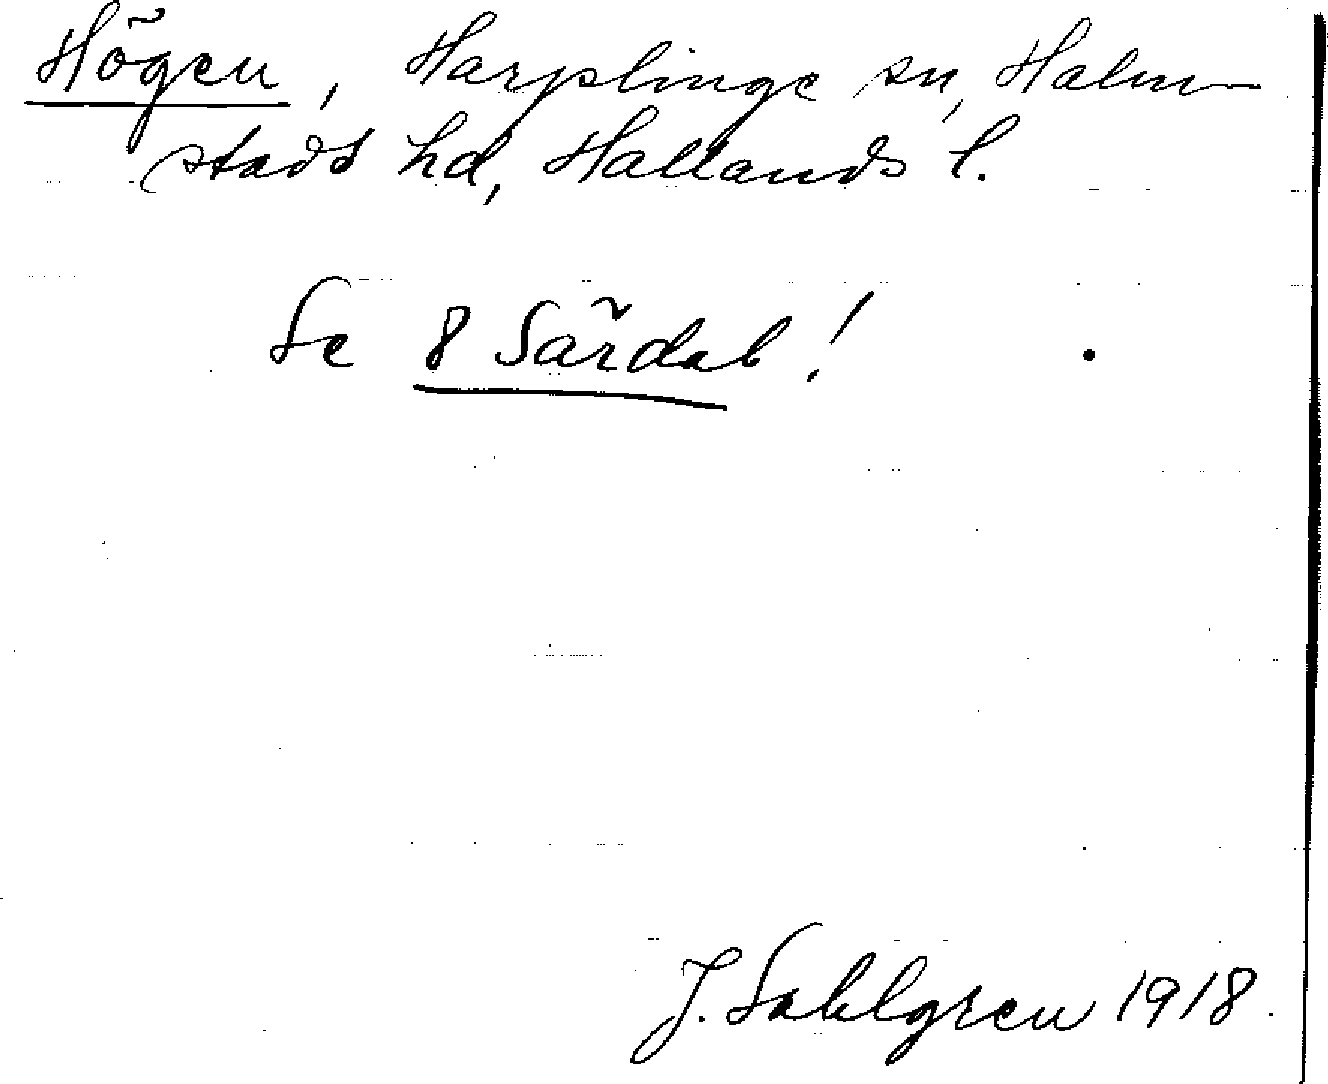 Högen, Harplinge sn, Halm-
stads hd, Hallands l.
Se 8 Särdal!
J. Sahlgren 1918.